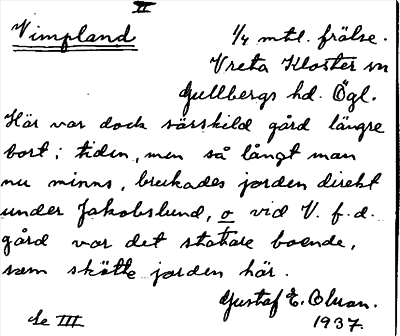 II
Vimpland 1/4 mtl. frälse.
Vreta Kloster sn
Gullbergs hd. Ögl.
Här var dock särskild gård längre
bort i tiden, men så långt man
nu minns, brukades jorden direkt
under Jakobslund, o vid V. f.d.
gård var det statare boende,
som skötte jorden här.
Gustaf E. Olsson.
Se III 1937.